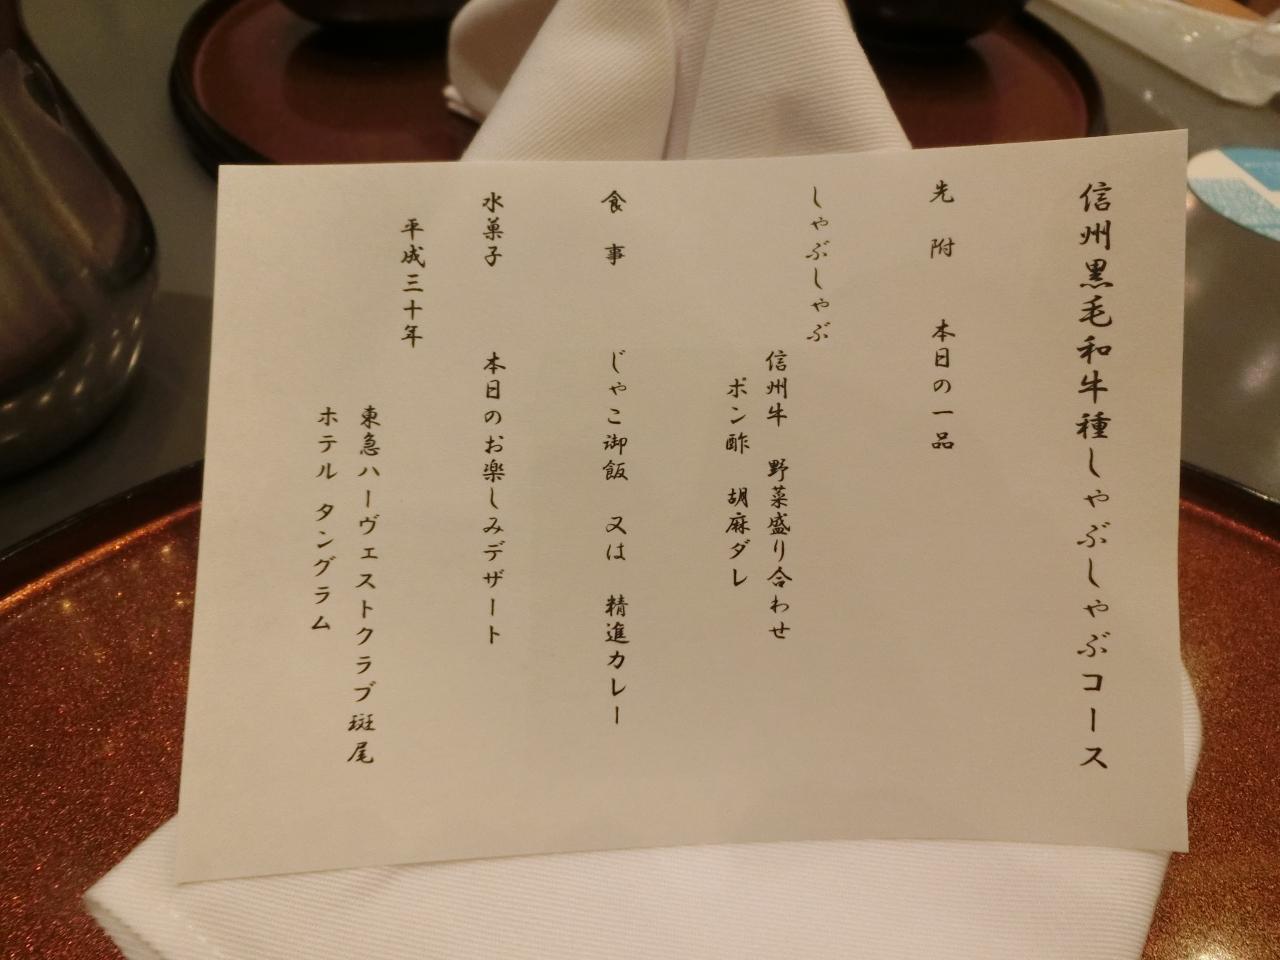 信州黒毛和牛種しゃぶしゃぶコース
先附 本日の一品
しゃぶしゃぶ
信州牛 野菜盛り合わせ
ポン酢 胡麻ダレ
食事 じゃこ御飯 又は 精進カレー
水菓子 本日のお楽しみデザート
平成三十年
東急ハーヴェストクラブ斑尾
ホテル タングラム